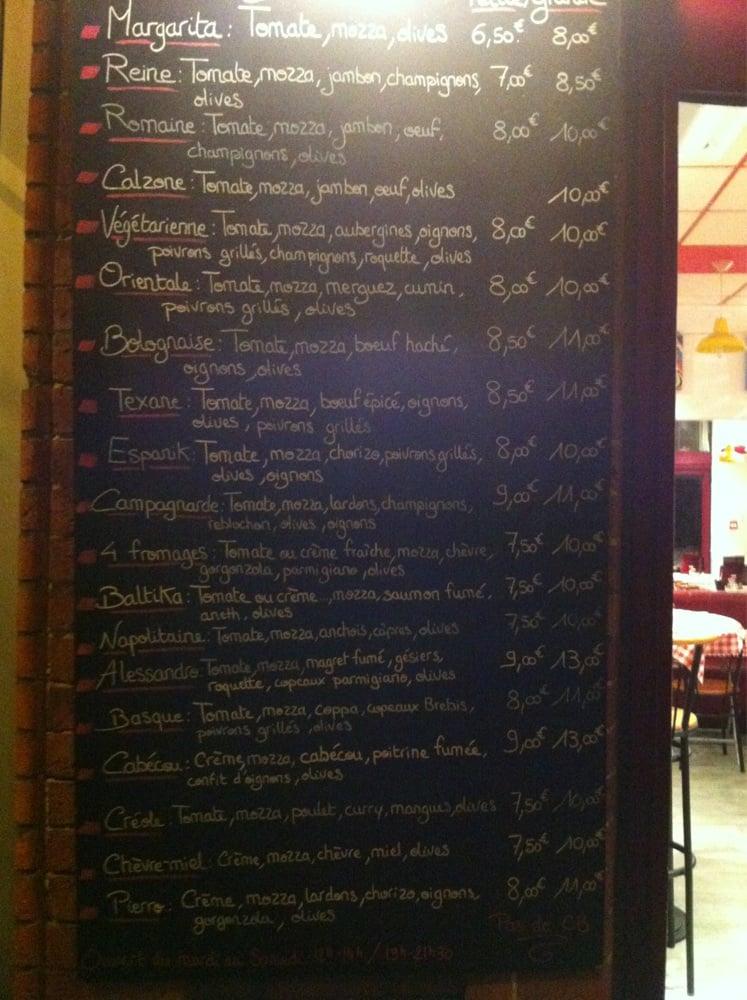 Petite/grande
Margarita : Tomate, mozza, olives 6,50€ 8,00€
Reine : Tomate, mozza, jambon, champignons, 7,00€ 8,50€
olives
Romaine : Tomate, mozza, jambon, oeuf, 8,00€ 10,00€
champignons, olives
Calzone : Tomate, mozza, jambon, oeuf, olives 10,00€
Végétarienne : Tomate, mozza, aubergines, oignons, 8,00€ 10,00€
poivrons grillés, champignons, roquette, olives
Orientale : Tomate, mozza, merguez, cumin, 8,00€ 10,00€
poivrons grillés, olives
Bolognaise : Tomate, mozza, boeuf haché, 8,50€ 11,00€
oignons, olives
Texane : Tomate, mozza, boeuf épicé, oignons, 8,50€ 11,00€
olives, poivrons grillés
Espanik : Tomate, mozza, chorizo, poivrons grillés, 8,00€ 10,00€
olives, oignons
Campagnarde : Tomate, mozza, lardons, champignons, 9,00€ 11,00€
reblochon, olives, oignons
4 fromages : Tomate ou crème fraîche, mozza, chèvre, 7,50€ 10,00€
gorgonzola, parmigiano, olives
Baltika : Tomate ou crème, mozza, saumon fumé, 7,50€ 10,00€
aneth, olives
Napolitaine : Tomate, mozza, anchois, câpres, olives 7,50€ 10,00€
Alessandro : Tomate, mozza, magret fumé, gésiers, 9,00€ 13,00€
roquette, copeaux parmigiano, olives
Basque : Tomate, mozza, coppa, copeaux Brebis, 8,00€ 11,00€
poivrons grillés, olives
Cabécou : Crème, mozza, cabécou, poitrine fumée, 9,00€ 13,00€
confit d'oignons, olives
Créole : Tomate, mozza, poulet, curry, mangues, olives 7,50€ 10,00€
Chèvre-miel : Crème, mozza, chèvre, miel, olives 7,50€ 10,00€
Pierro : Crème, mozza, lardons, chorizo, oignons, 8,00€ 11,00€
gorgonzola, olives
Pas de CB
Ouvert du mardi au Samedi 12h-14h / 19h-21h30